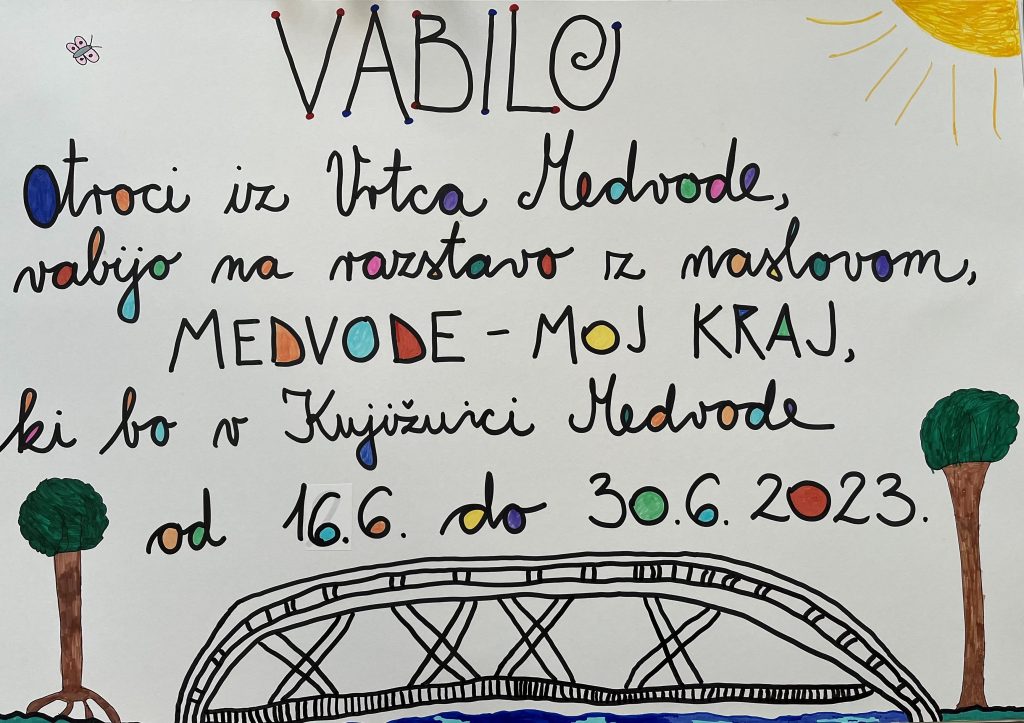 VABILO
Otroci iz Vrtca Medvode,
vabijo na razstavo z naslovom,
MEDVODE - MOJ KRAJ,
ki bo v Knjižnici Medvode
od 16.6. do 30.6.2023.